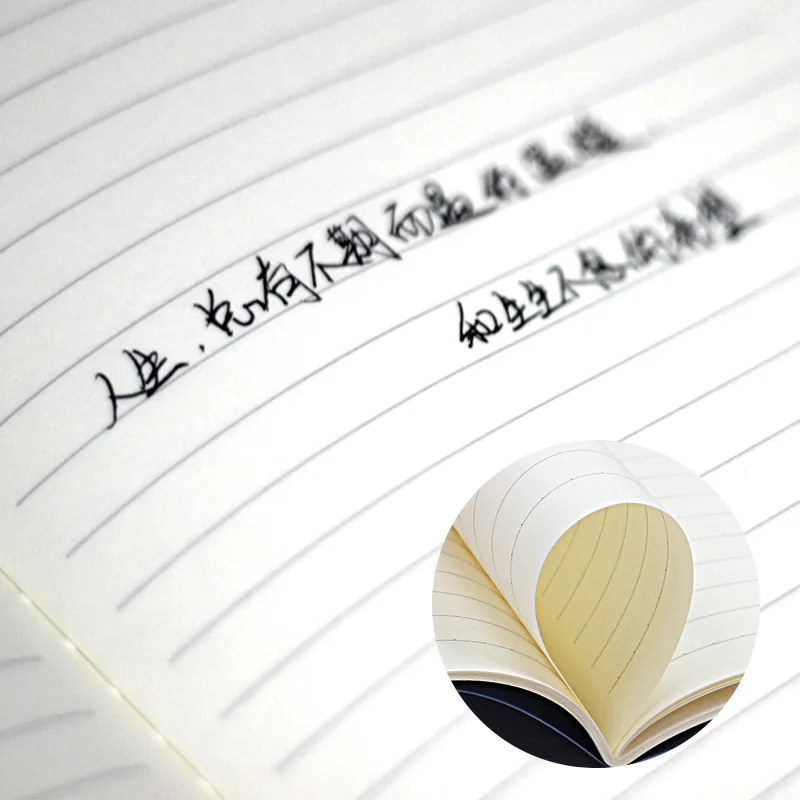 人生,总有不期而遇的温暖.
和生生不息的希望